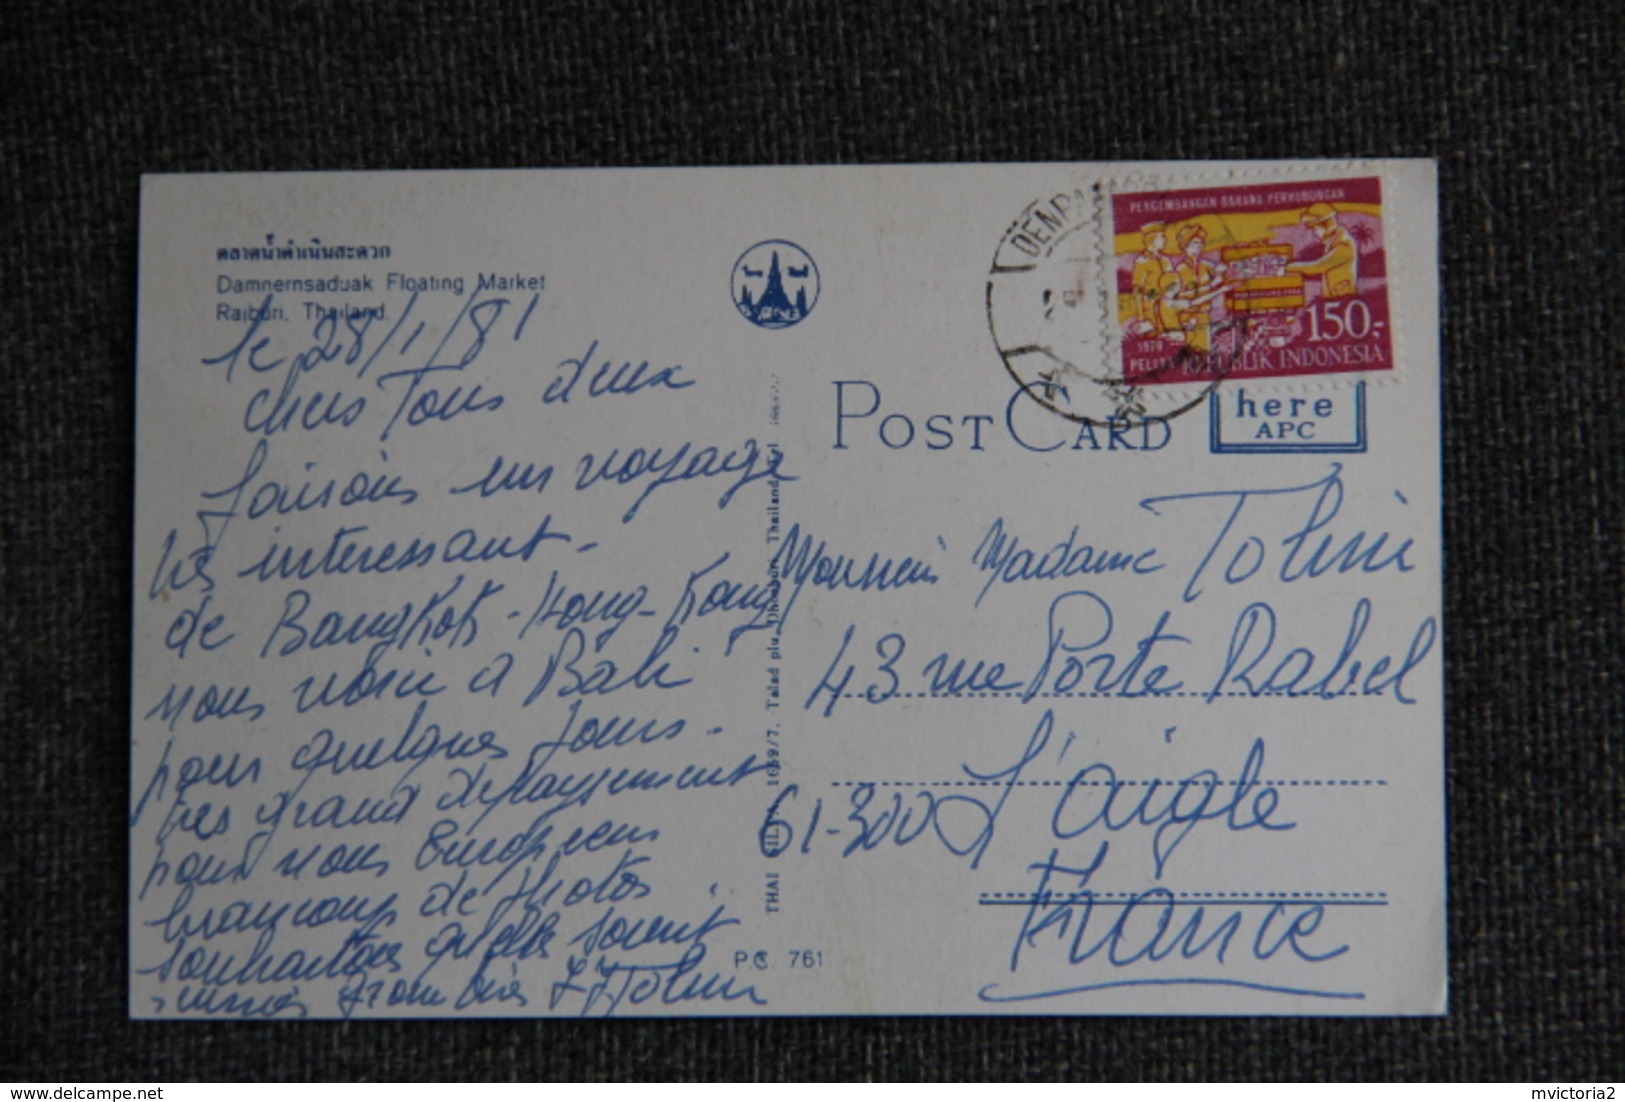 ตลาดน้ำดำเนินสะดวก
Damnernsaduak Floating Market
Rajburi, Thailand.
le 28/1/81
chers Tous deux
faisons un voyage
très interessant -
de Bangkok - Hong-Kong
nous voici à Bali
pour quelques jours -
très grand depaysement
pour nous Européens
beaucoup de photos
souhaitons qu'elles soient
J J Tolini
THAI SILVER 1659/7, Talad
Thailand
P.C. 761
POST CARD
here
APC
DENPASAR
PENGEMBANGAN BARANG PERHUBUNGAN
1979
150,-
REPUBLIK INDONESIA
Monsieur Madame Tolini
43 rue Porte Rabel
61-300 L'aigle
France
mvictoria2